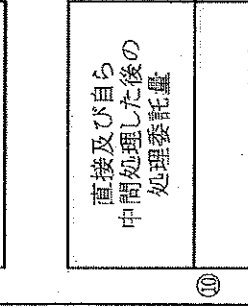 直接及び自ら
中間処理した後の
処理委託量
⑩